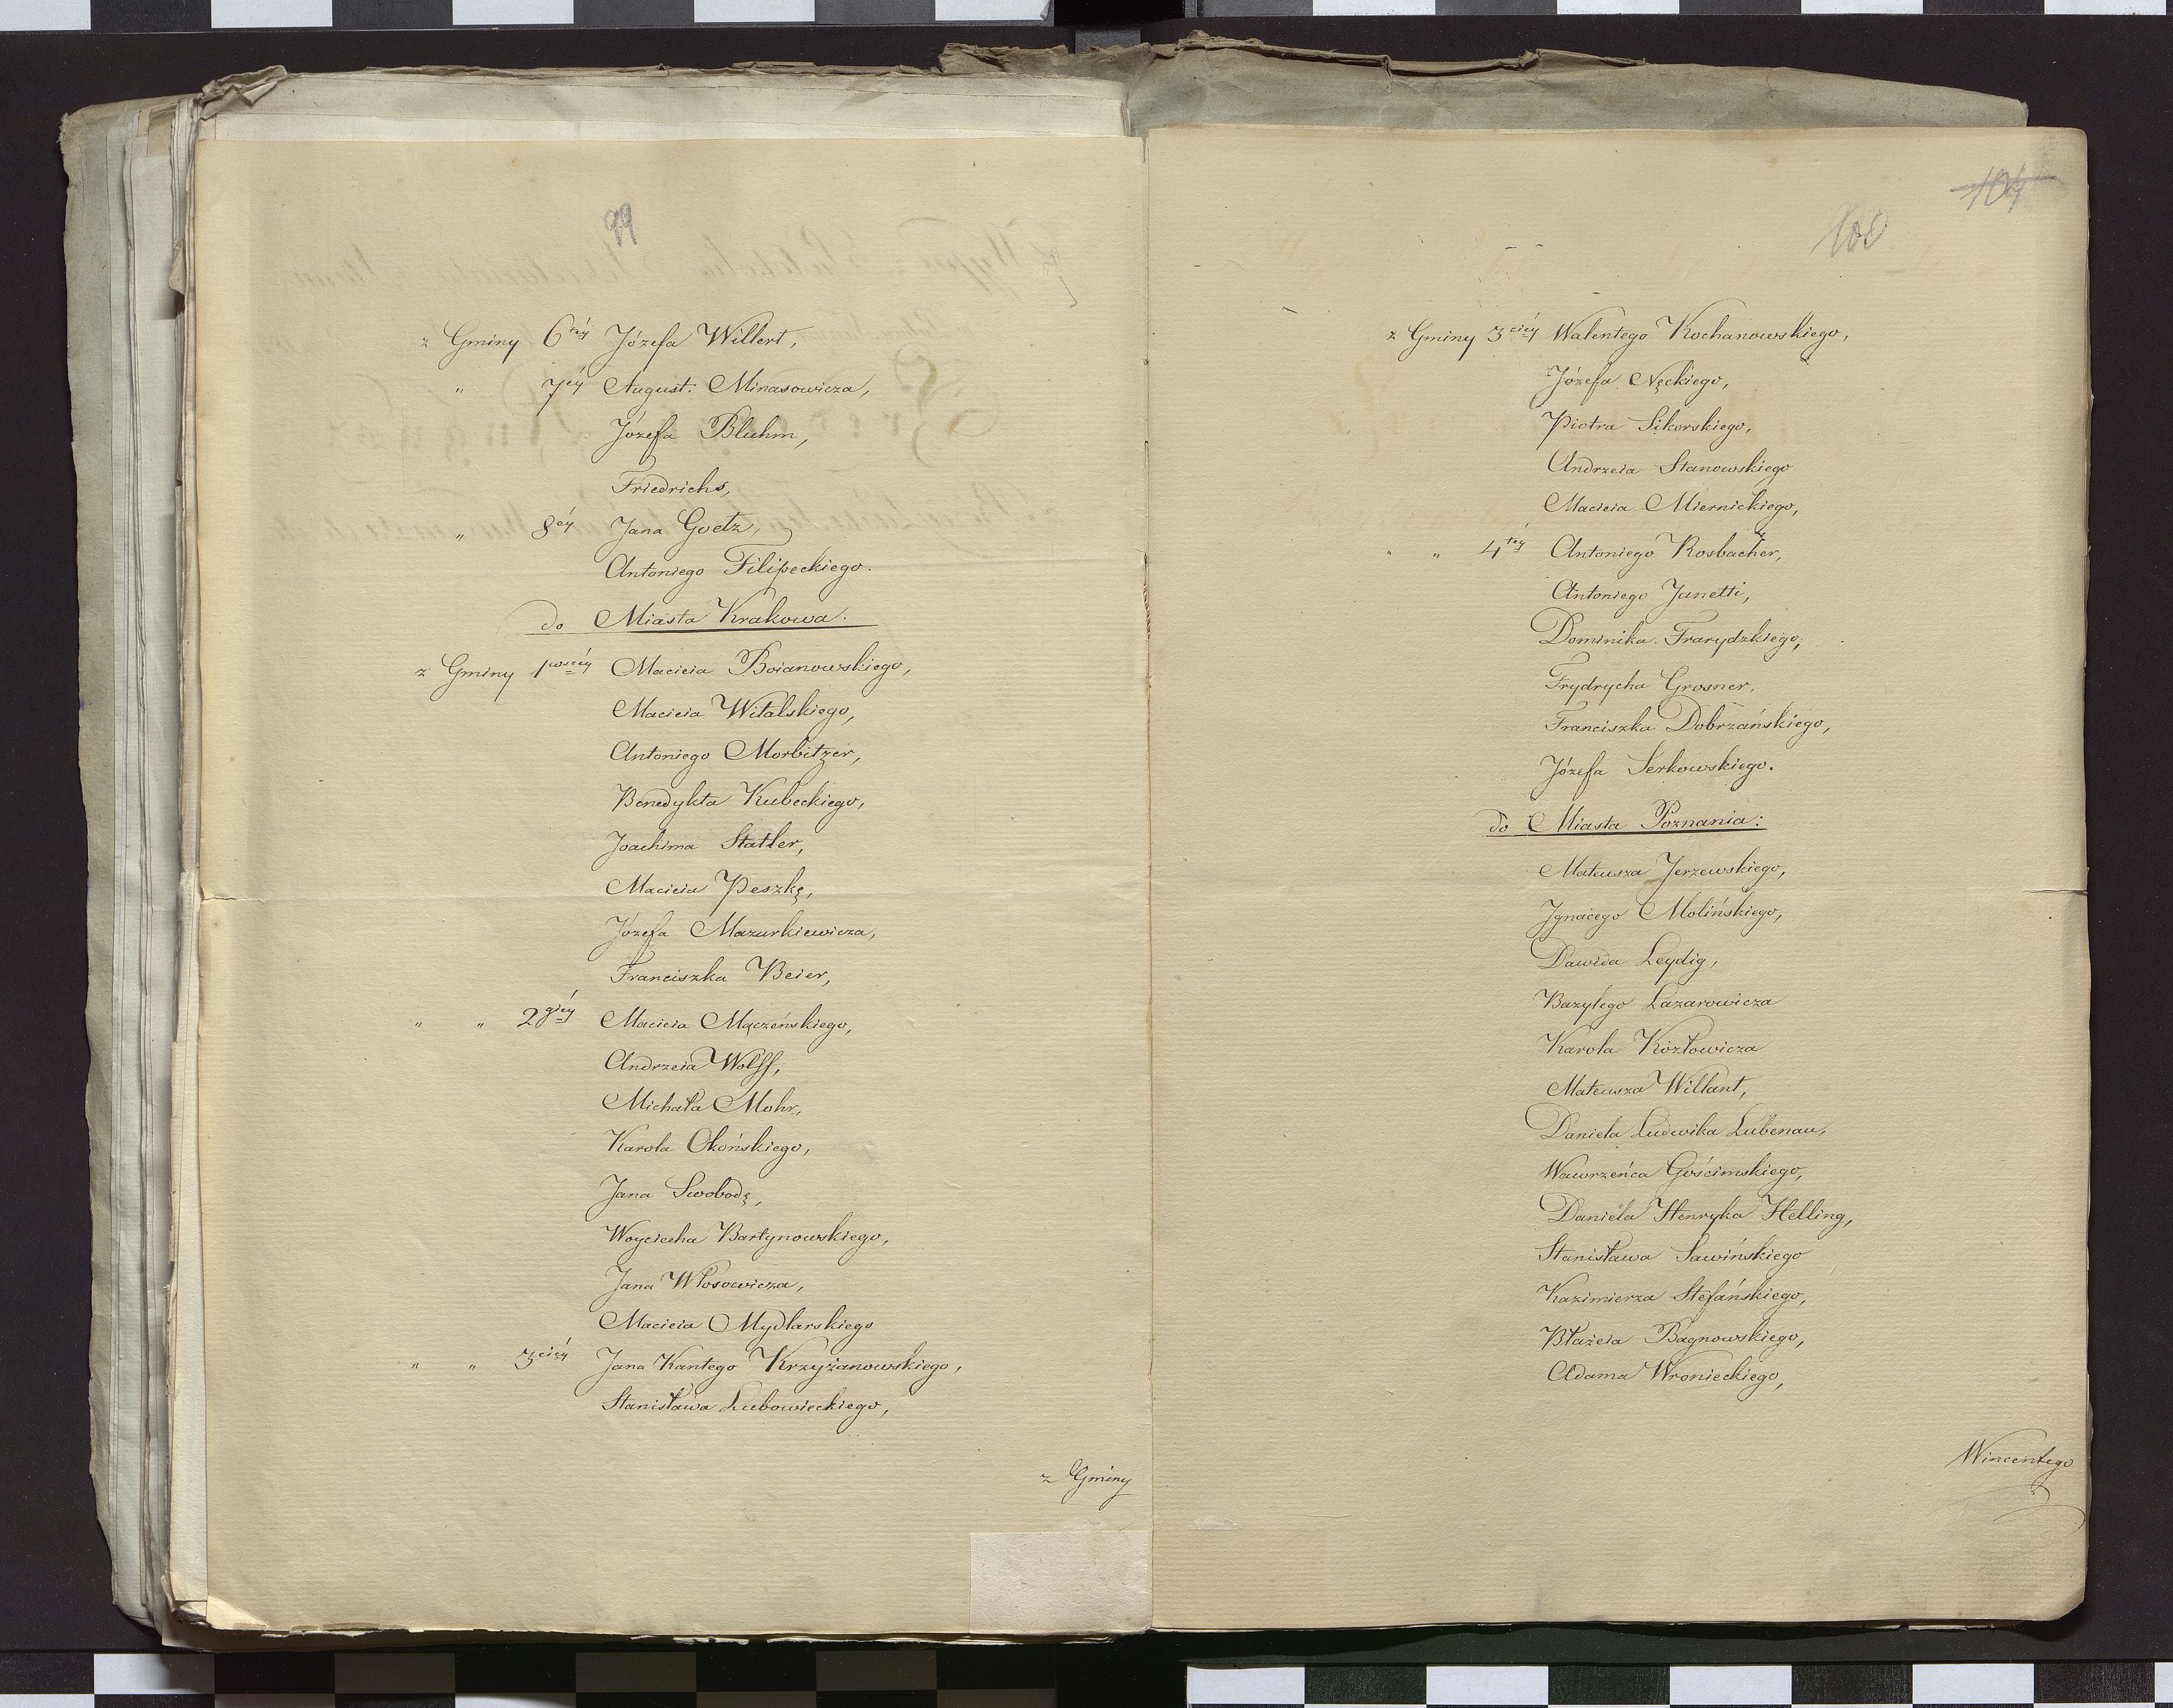 99
z Gminy 6téy Józefa Willert,
" 7éy August. Minasowicza,
Józefa Bluhm,
Friedrichs,
" 8éy Jana Goetz,
Antoniego Filipeckiego.
do Miasta Krakowa.
z Gminy 1wszéy Macieia Boianowskiego,
Macieia Witalskiego,
Antoniego Morbitzer,
Benedykta Kubeckiego,
Joachima Statler,
Macieia Peszkę,
Józefa Mazurkiewicza,
Franciszka Beier,
" " 2giéy Macieia Mączeńskiego,
Andrzeia Wolff,
Michała Mohr,
Karola Okońskiego,
Jana Swobodę,
Woyciecha Bartynowskiego,
Jana Włosowicza,
Macieia Mydlarskiego
" " 3ciéy Jana Kantego Krzyżanowskiego,
Stanisława Lubowieckiego,
z Gminy
104
100
z Gminy 3ciéy Walentego Kochanowskiego,
Józefa Nęckiego,
Piotra Sikorskiego,
Andrzeia Stanowskiego
Macieia Miernickiego,
" " 4téy Antoniego Rosbacher,
Antoniego Junetti,
Dominika Frarydzkiego,
Frydrycha Grosner,
Franciszka Dobrzańskiego,
Józefa Serkowskiego.
do Miasta Poznania:
Mateusza Jerzewskiego,
Jgnacego Molińskiego,
Dawida Leydig,
Bazylego Łazarowicza
Karola Kozłowicza
Mateusza Willant,
Daniela Ludwika Lubenau,
Wawrzeńca Gościmskiego,
Daniela Henryka Helling,
Stanisława Sawińskiego
Kazimierza Stefańskiego,
Błażeia Bagnowskiego,
Adama Wronieckiego,
Wincentego